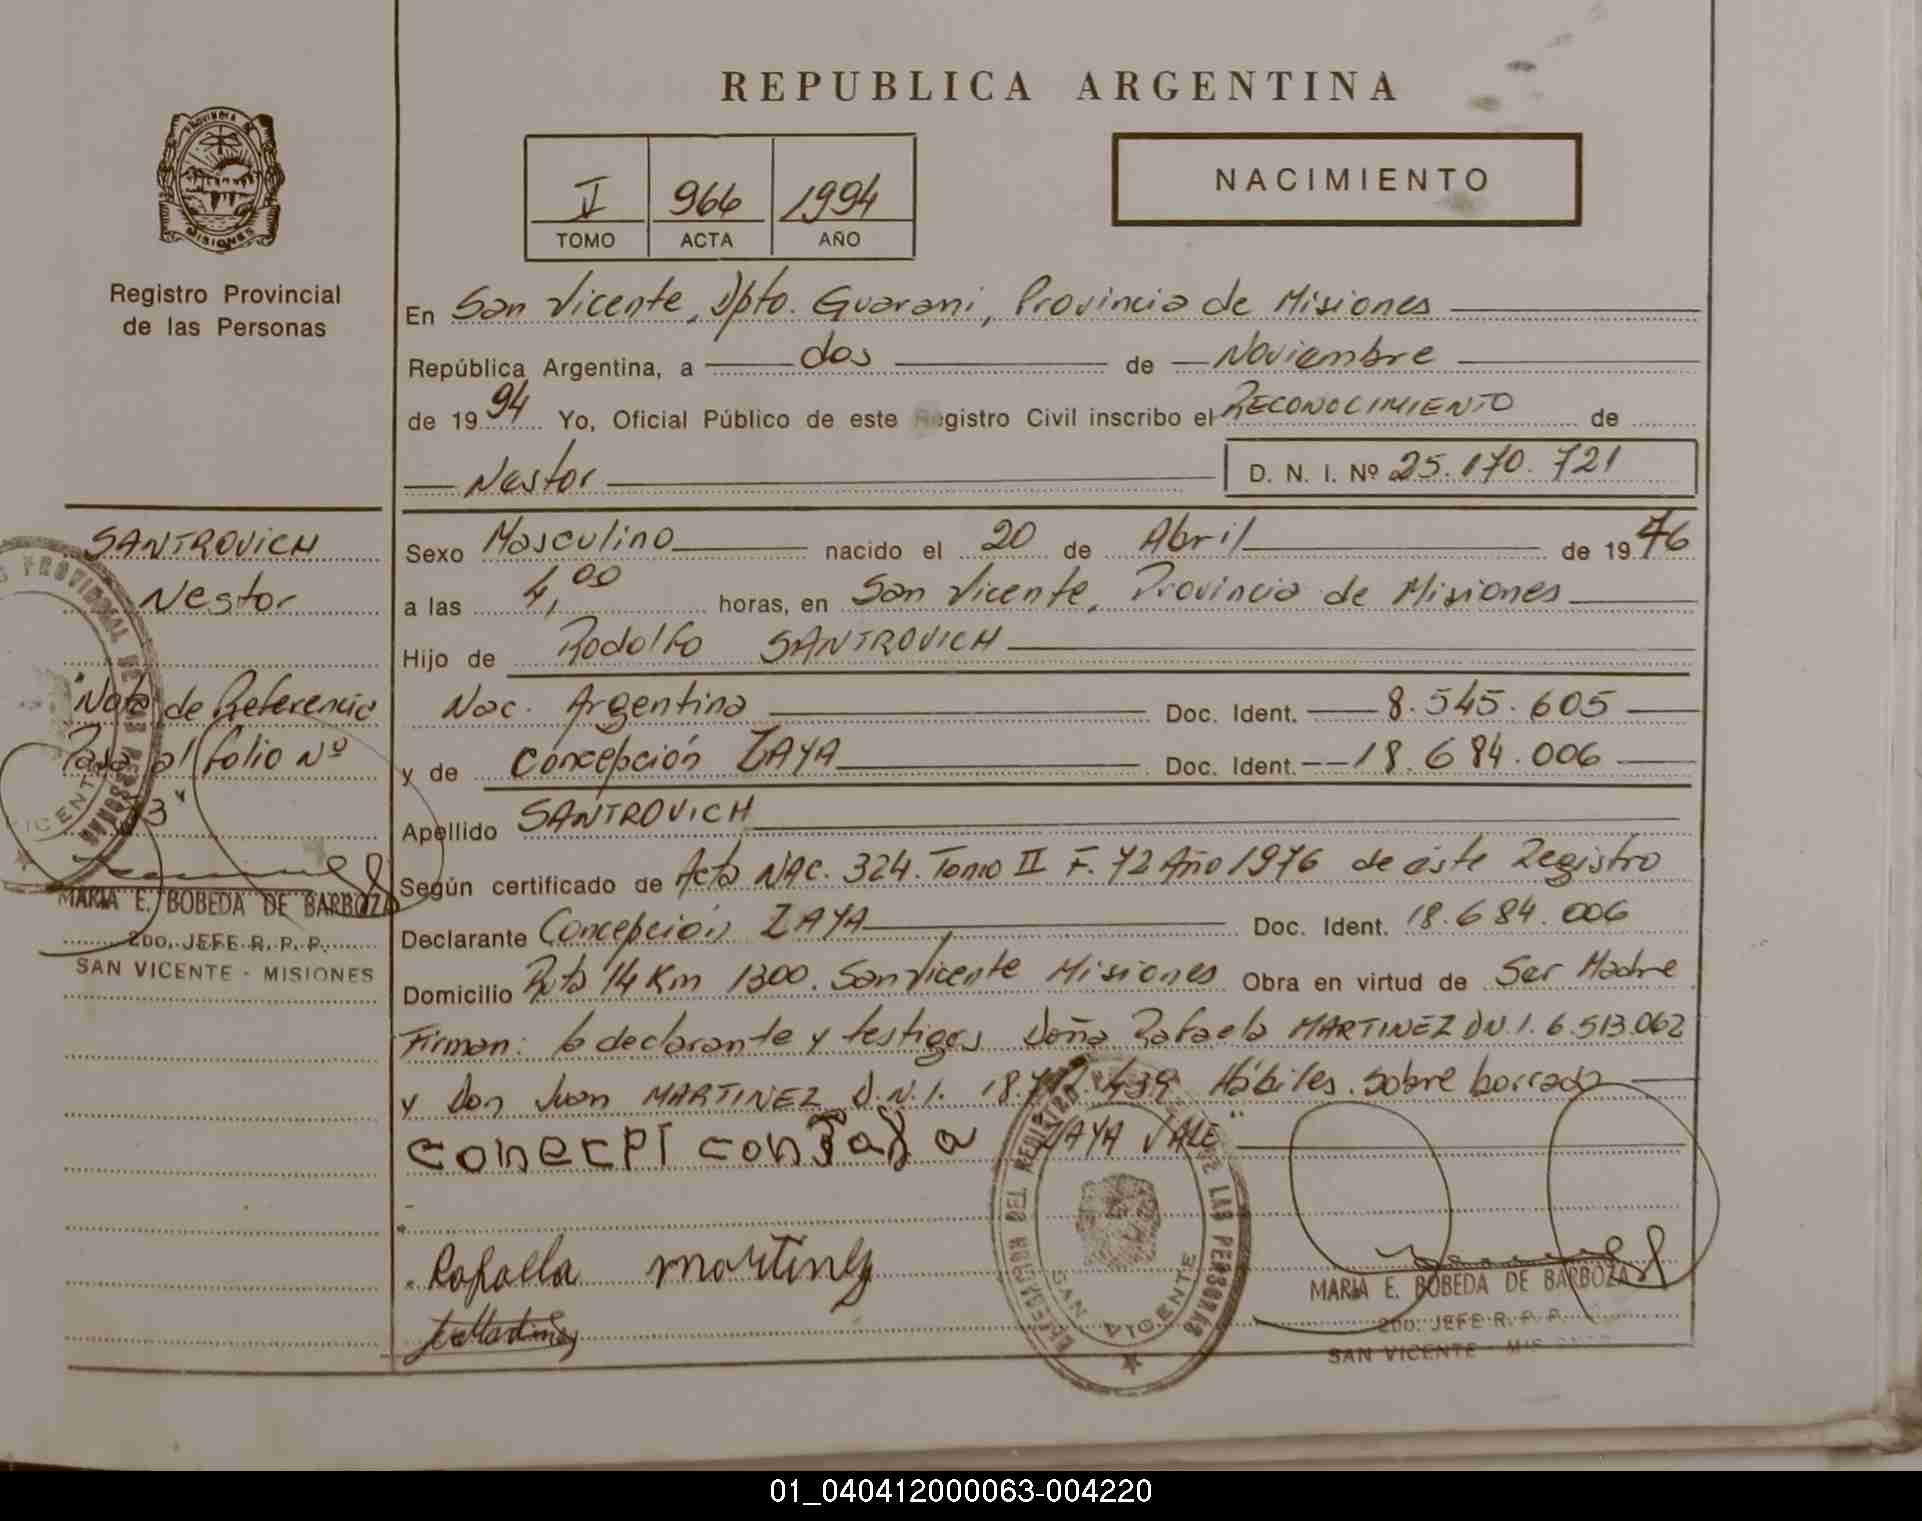 REPUBLICA ARGENTINA
PROVINCIA DE
MISIONES
Registro Provincial
de las Personas
V 966 1994
TOMO ACTA AÑO
NACIMIENTO
En San Vicente, Dpto. Guarani, Provincia de Misiones
República Argentina, a dos de Noviembre
de 1994 Yo, Oficial Público de este Registro Civil inscribo el RECONOCIMIENTO de
Nestor D. N. I. Nº 25.170.721
SANTROVICH
Nestor
"Nota de Referencia
Pasa al folio Nº
MARIA E. BOBEDA DE BARBOZA
2DO. JEFE R. P. P.
SAN VICENTE - MISIONES
Sexo Masculino nacido el 20 de Abril de 1976
a las 4,00 horas, en San Vicente, Provincia de Misiones
Hijo de Rodolfo SANTROVICH
Nac. Argentina Doc. Ident. 8.545.605
y de Concepción ZAYA Doc. Ident. 18.684.006
Apellido SANTROVICH
Según certificado de Acta NAC. 324. Tomo II F. 72 Año 1976 de éste Registro
Declarante Concepción ZAYA Doc. Ident. 18.684.006
Domicilio Ruta 14 Km 1300. San Vicente Misiones Obra en virtud de Ser Madre
Firman: la declarante y testigos Doña Rafaela MARTINEZ D.N.I. 6.513.062
y Don Juan MARTINEZ D.N.I. 439 Hábiles. Sobre borrado
ZAYA VALE"
conecpi con
Rafaella martinez
SAN VICENTE
MARIA E. BOBEDA DE BARBOZA
2DO. JEFE R. P. P.
SAN VICENTE - MIS
01_040412000063-004220